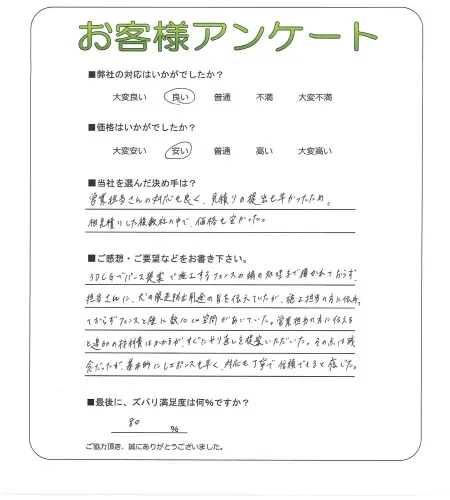 お客様アンケート
■弊社の対応はいかがでしたか？
大変良い 良い 普通 不満 大変不満
■価格はいかがでしたか？
大変安い 安い 普通 高い 大変高い
■当社を選んだ決め手は？
営業担当さんの対応も良く、見積りの提出も早かったため。
相見積りした複数社の中で、価格も安かった。
■ご感想・ご要望などをお書き下さい。
3DCGでパース提案で施工するフェンスの端の処理まで描かれておらず、
担当さんに、犬の脱走防止用途の旨を伝えていたが、施工担当の方に伝わっ
ておらずフェンスと壁に数10cm空間があいていた。営業担当の方に伝える
と追加の材料費はかかるが、すぐにやり直しを提案いただいた。その点は残
念だったが、基本的にレスポンスも早く、対応も丁寧で信頼できると感じた。
■最後に、ズバリ満足度は何%ですか？
80 %
ご協力頂き、誠にありがとうございました。